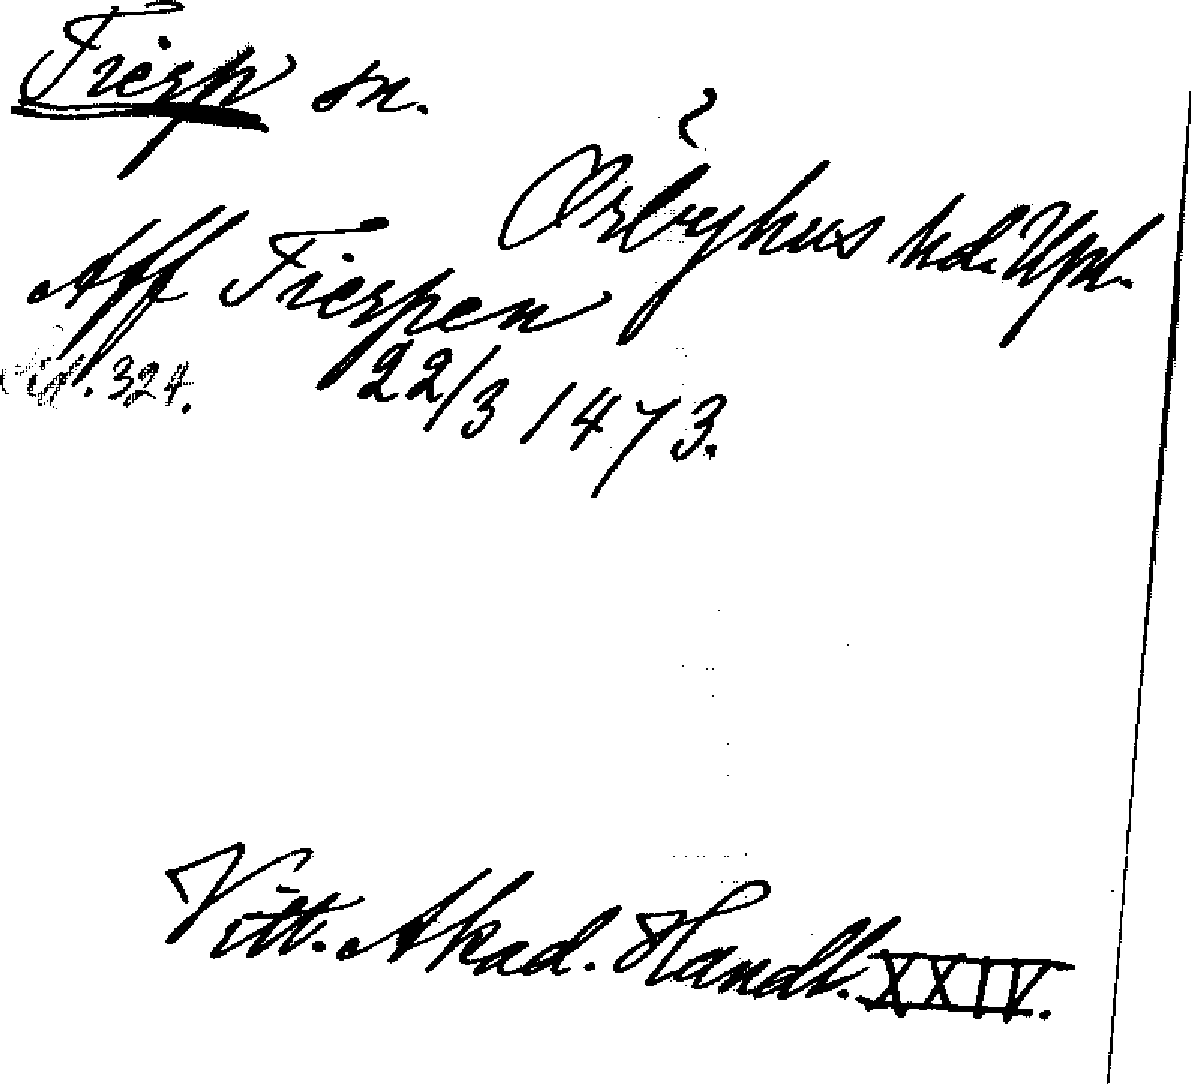 Tierp sn.
Örbyhus hd. Upl.
Aff Tierpen
22/3 1473.
324.
Vitt. Akad. Handl. XXIV.